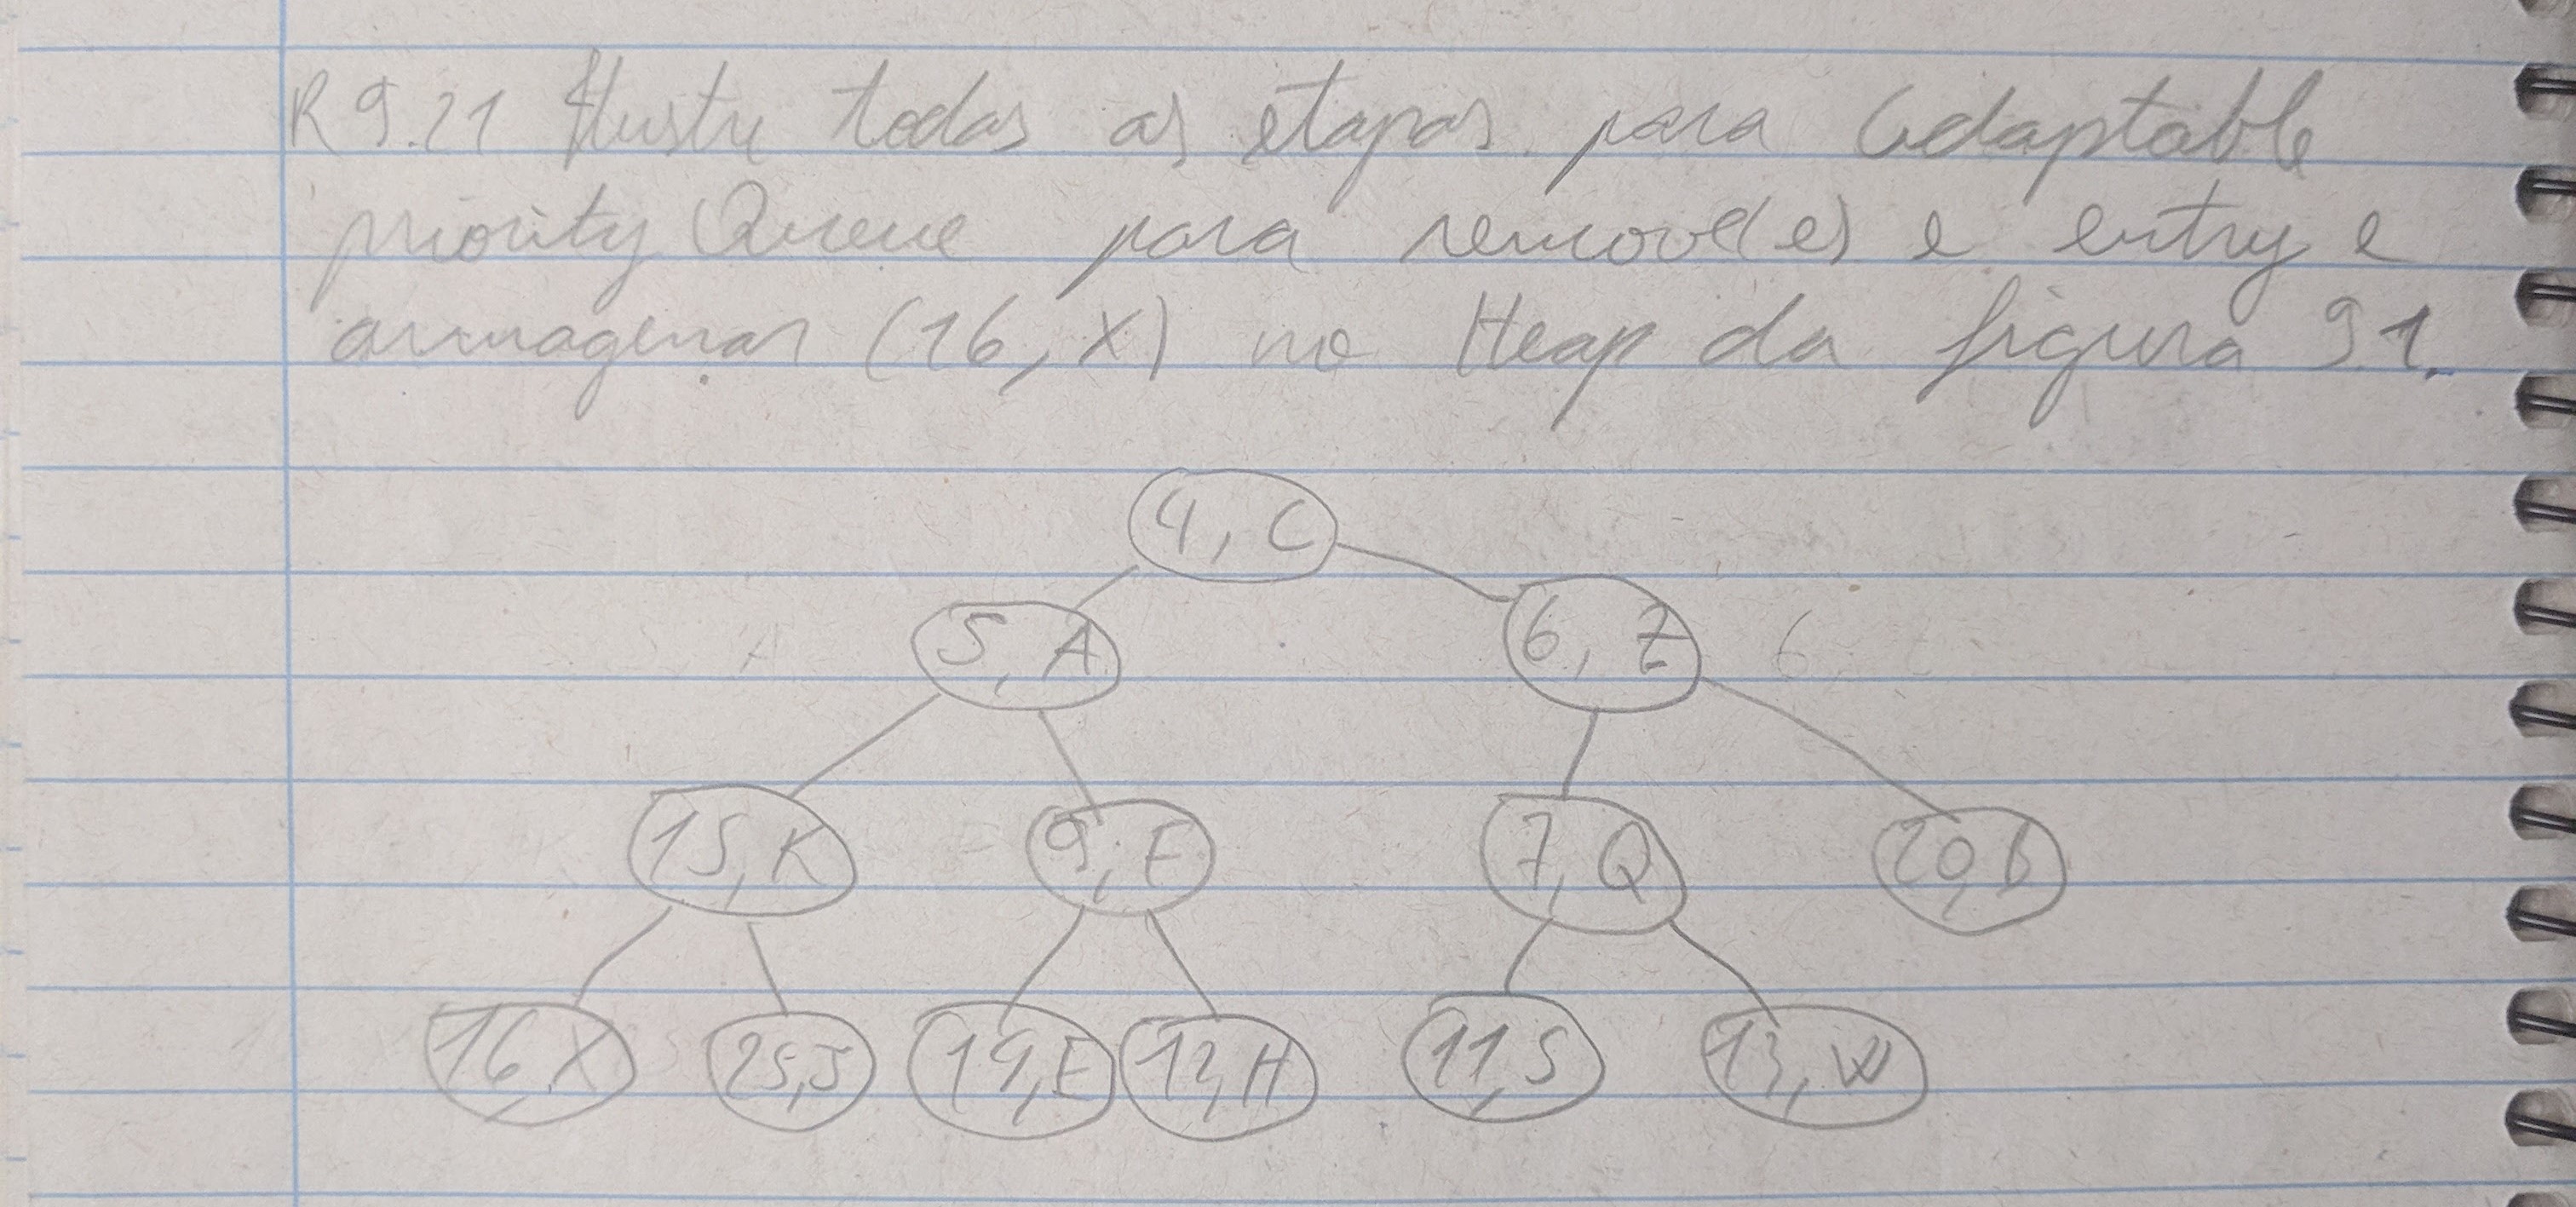 R 9.21 Ilustre todas as etapas para Adaptable
priority Queue para remove(e) e entry e
armagenar (16, X) no Heap da figura 9.1.
4, C
5, A
6, Z
15, K
9, F
7, Q
20, B
16, X
25, J
14, E
12, H
11, S
13, W